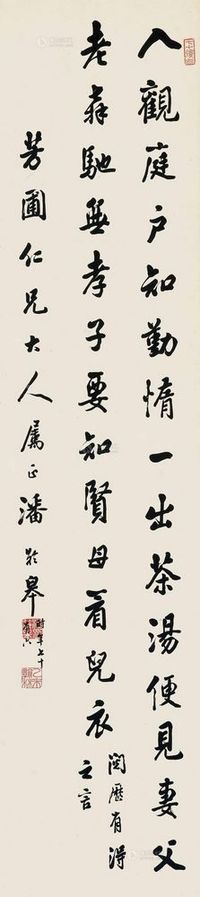 入觀庭戶知勤惰一出茶湯便見妻父
老奔馳無孝子要知賢母看兒衣
閱歷有得
之言
芳圃仁兄大人屬正潘齡皋
時年七十
有六